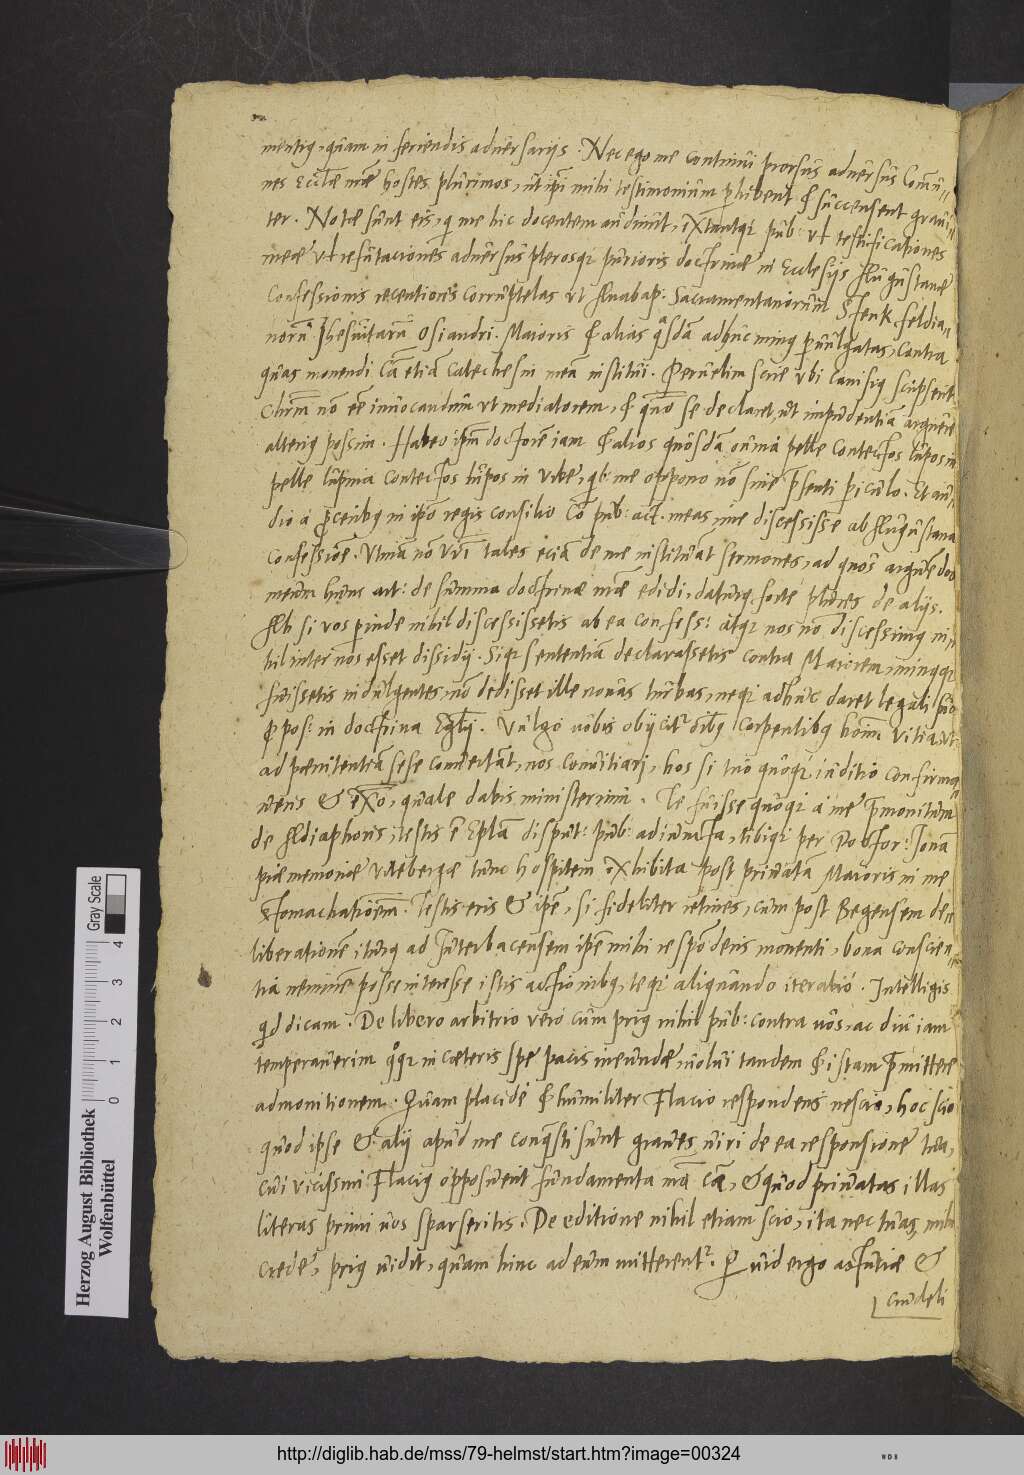 mentis, quam in feriendis adversarijs. Nec ego me continui prorsus adversus Commu-
nes Ecclae nrae hostes plurimos, ut ipsi mihi testimonium phibent & succensent gravi-
ter. Notae sunt eis, q me hic docentem audiunt, extantqz pub: vt testificationes
meae vt refutationes adversus plerosqz purioris doctrinae in Ecclesijs Augustanae
Confessionis recentiores corruptelas vt Anabap: Sacramentariorum Stenkfeldia-
norum Jhesuitaru Osiandri. Maioris & alias qsda adhuc minus pvulgatas, contra
quas monendi ca etia Catechesin mea institui. Pervelim scire vbi Canisius scripserit
Chrm no ee invocandum vt mediatorem, & quo se declaret, ut impudentia arguere
alterius possim. Habeo ipm doctore iam & alios quosda ouina pelle contectos lupos in
pelle lupina contectos lupos in vrbe, qb me oppono no sine psenti piculo. Et au-
dio a pceribus in ipo regis consilio Co pub: act: meas me discessisse ab Augustana
Confessioe. Vtina no vri tales ecia de me instituat sermones, ad quos arguedos
meum huius art: de summa doctrinae meae edidi, daturus forte plures de alijs.
At si vos perinde nihil discessissetis ab ea confess: atqz nos no discessimus ni-
hil inter nos esset dissidij. Siqz sententia declarassetis contra Maiorem, minusqz
fuissetis indulgentes, no dedisset ille novas turbas, neqz adhuc daret legali suo
ppos: in doctrina Eglij. Vulgo vobis obijcitr oibus carpentibus hoim vitia, vt
ad poenitentia sese convertat, vos conviliari, hos si tuo quoqz iuditio confirma-
veris & exo, quale dabis ministerium. Te fuisse quoqz a me pmonitum
de Adiaphoris, testis e Epla disput: pub: adiuncta, tibiqz per Doctor: Jona
piae memoriae vitebergae tunc hospitem exhibita post privata Maioris in me
stomachatioem. Testis eris & ipe, si fideliter retines, cum post Begensem de-
liberatione iturus ad Juterbacensem ipe mihi respoderis monenti, bona conscien-
tia nemine posse interesse istis actionibus, teqz aliquando iteratio. Intelligis
qd dicam. De libero arbitrio vero cum prius nihil pub: contra vos, ac diu iam
temperaverim qoqz in caeteris spe pacis ineundae, volui tandem & istam pmittere
admonitionem. Quam placide & humiliter Flacio respondens nescio, hoc scio
quod ipse & alij apud me conqsti sunt graves viri de ea responsione tua,
cui vicissim Flacius opposuerit fundamenta mota ca, & quod privatas illas
literas primi vos sparseritis. De editione nihil etiam scio, ita nec tuas, mihi
crede, prius vidit, quam hinc ad eum mitterentr. Quid ergo astutiae &
crudeli
Gray Scale
0 1 2 3 4
Herzog August Bibliothek
Wolfenbüttel
http://diglib.hab.de/mss/79-helmst/start.htm?image=00324